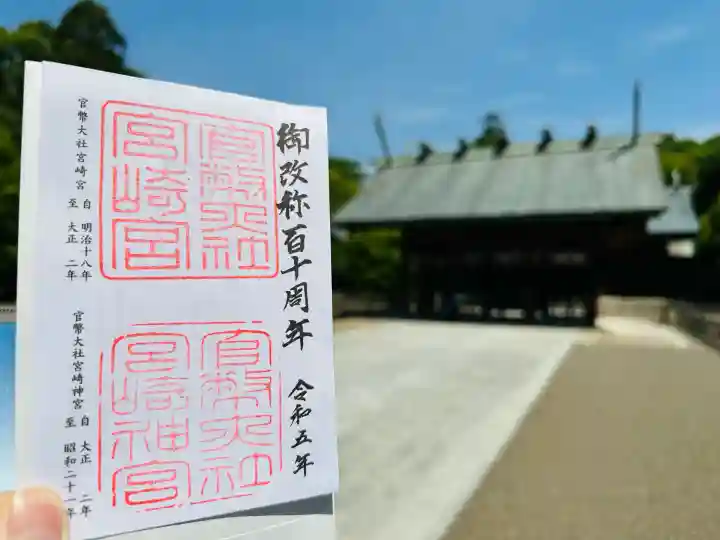 御改称百十周年 令和五年
官幣大社
宮崎宮
官幣大社宮崎宮 自 明治十八年
至 大正 二年
官幣大社
宮崎神宮
官幣大社宮崎神宮 自 大正 二年
至 昭和二十一年